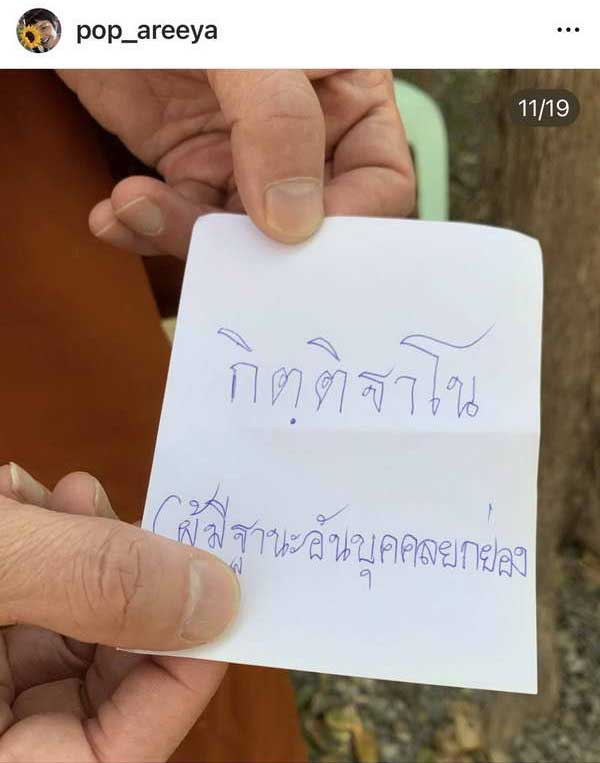 pop_areeya
11/19
กิตฺติฐาโน
(ผู้มีฐานะอันบุคคลยกย่อง